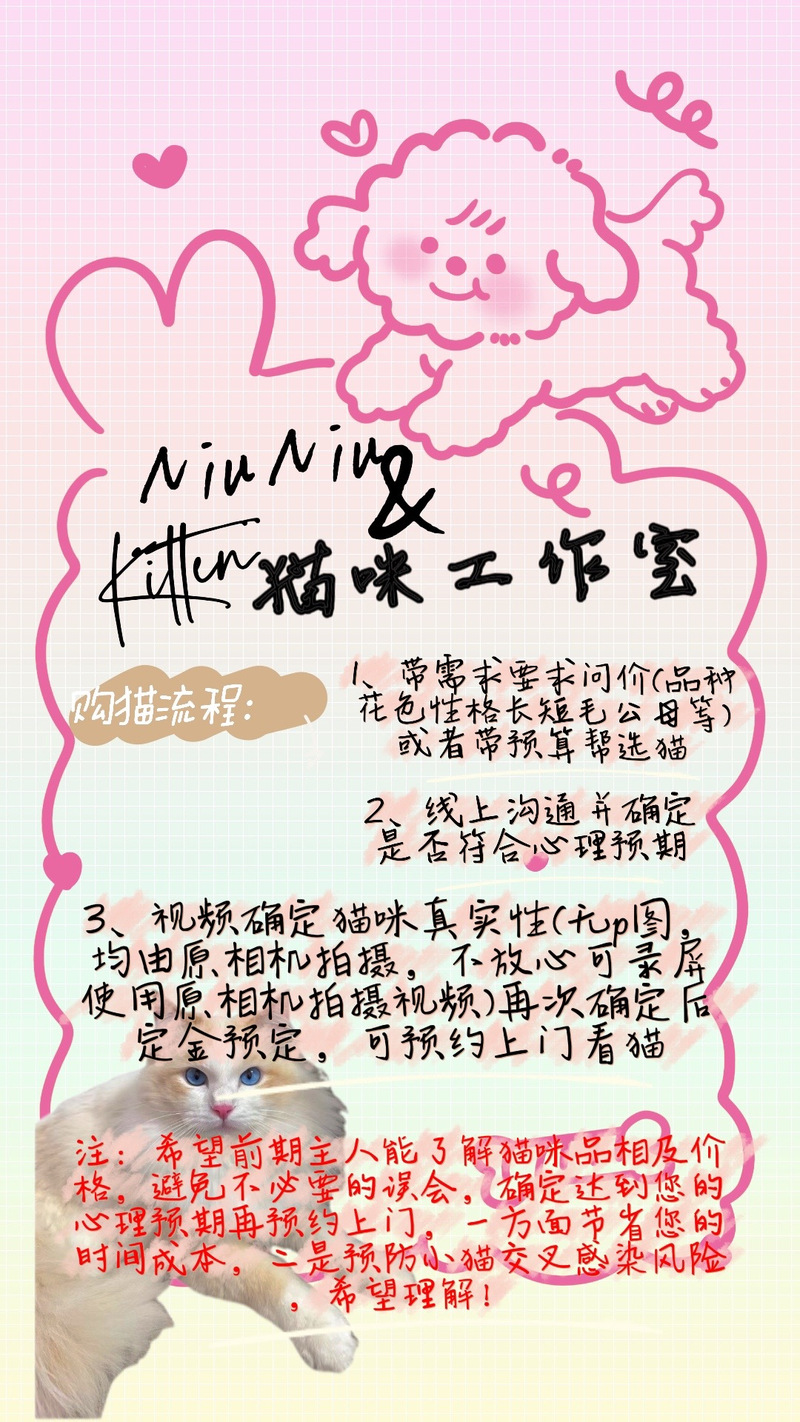 Niu Niu
&
Kitten 猫咪工作室
购猫流程：
1、带需求要求问价(品种
花色性格长短毛公母等)
或者带预算帮选猫
2、线上沟通并确定
是否符合心理预期
3、视频确定猫咪真实性(无p图，
均由原相机拍摄，不放心可录屏
使用原相机拍摄视频)再次确定后
定金预定，可预约上门看猫
注：希望前期主人能了解猫咪品相及价
格，避免不必要的误会，确定达到您的
心理预期再预约上门，一方面节省您的
时间成本，二是预防小猫交叉感染风险
，希望理解！